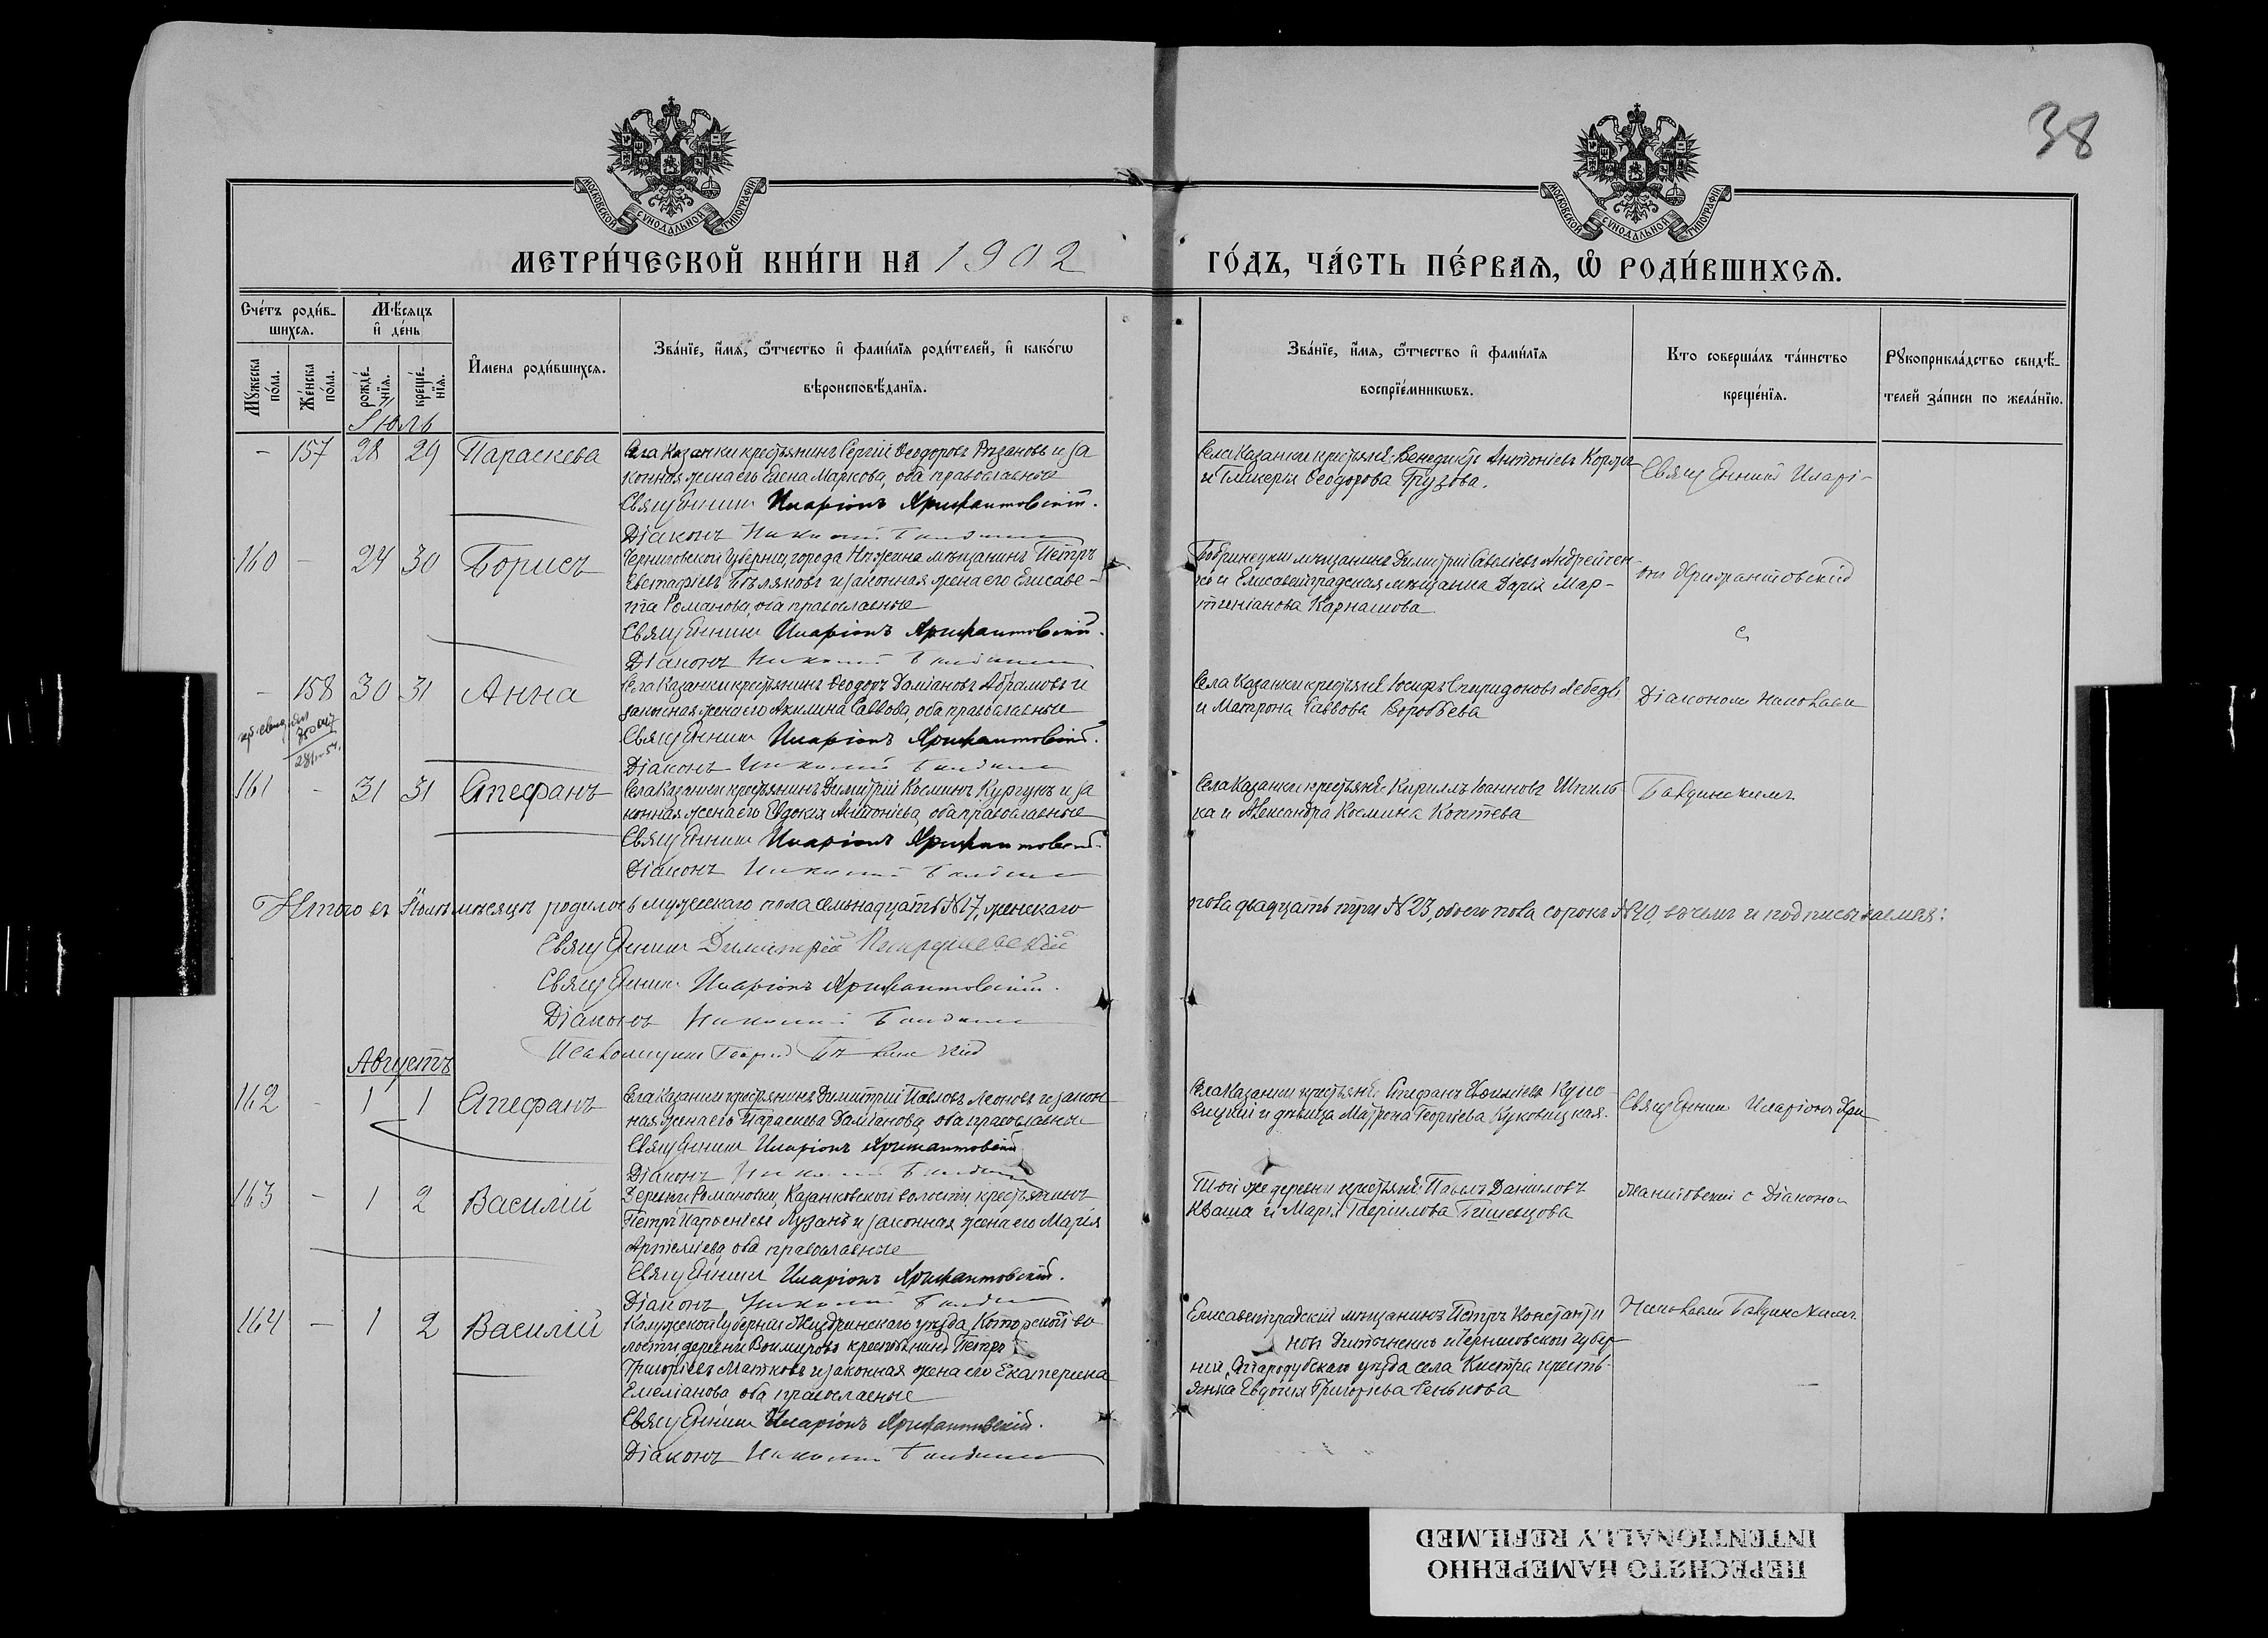 38
МОСКОВСКОЙ СѴНОДАЛЬНОЙ ТИПОГРАФІИ
МОСКОВСКОЙ СѴНОДАЛЬНОЙ ТИПОГРАФІИ
МЕТРИ́ЧЕСКОЙ КНИ́ГИ НА 1902
ГО́ДЪ, ЧА́СТЬ ПЕ́РВАЯ, Ѡ҆ РОДИ́ВШИХСЯ.
Сче́тъ роди́в-
шихся.
Мѣ́сяцъ
и҆ де́нь
Мꙋ́жеска
по́ла.
Же́нска
по́ла.
рожде́-
нїя.
креще́-
нїя.
И҆мена роди́вшихся.
Зва́нїе, и҆́мя, ѻ҆́тчество и҆ фами́лїя роди́телей, и҆ како́гѡ
вѣроисповѣ́данїя.
Зва́нїе, и҆́мя, ѻ҆́тчество и҆ фами́лїя
воспрїе́мникѡвъ.
Кто соверша́лъ та́инство
креще́нїя.
Рꙋкоприкла́дство свидѣ́-
телей за́писи по жела́нїю.
Іюль
- 157 28 29 Параскева
Села Казанки крестьянинъ Сергій Ѳеодоровъ Рязановъ и за
конная жена его Елена Маркова, оба православные
Священникъ Иларіонъ Хрисантовскій.
Діаконъ Николай
Села Казанки крестьяне: Венедиктъ Антоніевъ
и Гликерія Ѳеодорова Грузова.
Священникъ Иларі-
160 - 24 30 Борисъ
Черниговской губерніи, города Нѣжина мѣщанинъ Петръ
Евстафіевъ Бѣляковъ и законная жена его Елисаве-
та Романова, оба православные
Священникъ Иларіонъ Хрисантовскій.
Діаконъ Николай
Бобринецкій мѣщанинъ Димитрій Савеліевъ Андрейчен
ко и Елисаветградская мѣщанка Дарія Мар-
тиніанова Карнашова
онъ Хрисантовскій
с
- 158 30 31 Анна
Села Казанки крестьянинъ Ѳеодоръ Даміановъ Абрамовъ и
законная жена его Акилина Саввова, оба православные
Священникъ Иларіонъ Хрисантовскій.
Діаконъ Николай
Села Казанки крестьяне: Іосифъ Спиридоновъ Лебедь
и Матрона Саввова Воробьева
Діакономъ Николаем
161 - 31 31 Стефанъ
Села Казанки крестьянинъ Димитрій Косминъ Кургунъ и за
конная жена его Евдокія Антоніева, оба православные
Священникъ Иларіонъ Хрисантовскій.
Діаконъ Николай
Села Казанки крестьяне: Кириллъ Іоанновъ Шпиль
ка и Александра Космина Коптева
Итого въ Іюлѣ мѣсяцѣ родилось мужескаго пола семьнадцать №17, женскаго
пола двадцать три №23, обоего пола сорокъ №40, въ чемъ и подписываемся:
Священникъ Димитрій
Священникъ Иларіонъ Хрисантовскій.
Діаконъ Николай
Псаломщикъ Георгій
Августъ
162 - 1 1 Стефанъ
Села Казанки крестьянинъ Димитрій Павловъ Леоновъ и закон
ная жена его Параскева Даміанова, оба православные
Священникъ Иларіонъ Хрисантовскій
Діаконъ Николай
Села Казанки крестьяне: Стефанъ
и дѣвица Матрона Георгіева Куковицкая.
Священникъ Иларіонъ Хри
163 - 1 2 Василій
Деревни Романовки, Казанковской волости, крестьянинъ
Петръ Парѳеніевъ Лузанъ и законная жена его Марія
оба православные
Священникъ Иларіонъ Хрисантовскій.
Діаконъ Николай
Той же деревни крестьяне: Павелъ Даниловъ
Кваша и Марія Гавриилова
сантовскій с Діакономъ
164 - 1 2 Василій
Калужской губерніи Жиздринскаго уѣзда, Которской во
лости деревни Воимирово крестьянинъ Петръ
Григоріевъ Матковъ и законная жена его Екатерина
Емеліанова оба православные
Священникъ Иларіонъ Хрисантовскій.
Діаконъ Николай
Елисаветградскій мѣщанинъ Петръ Константи
новъ и Черниговской губер
ніи, Стародубскаго уѣзда села Кистра кресть-
янка Евдокія Григоріева Сенькова
Николаемъ
ПЕРЕСНЯТО НАМЕРЕННО
INTENTIONALLY REFILMED